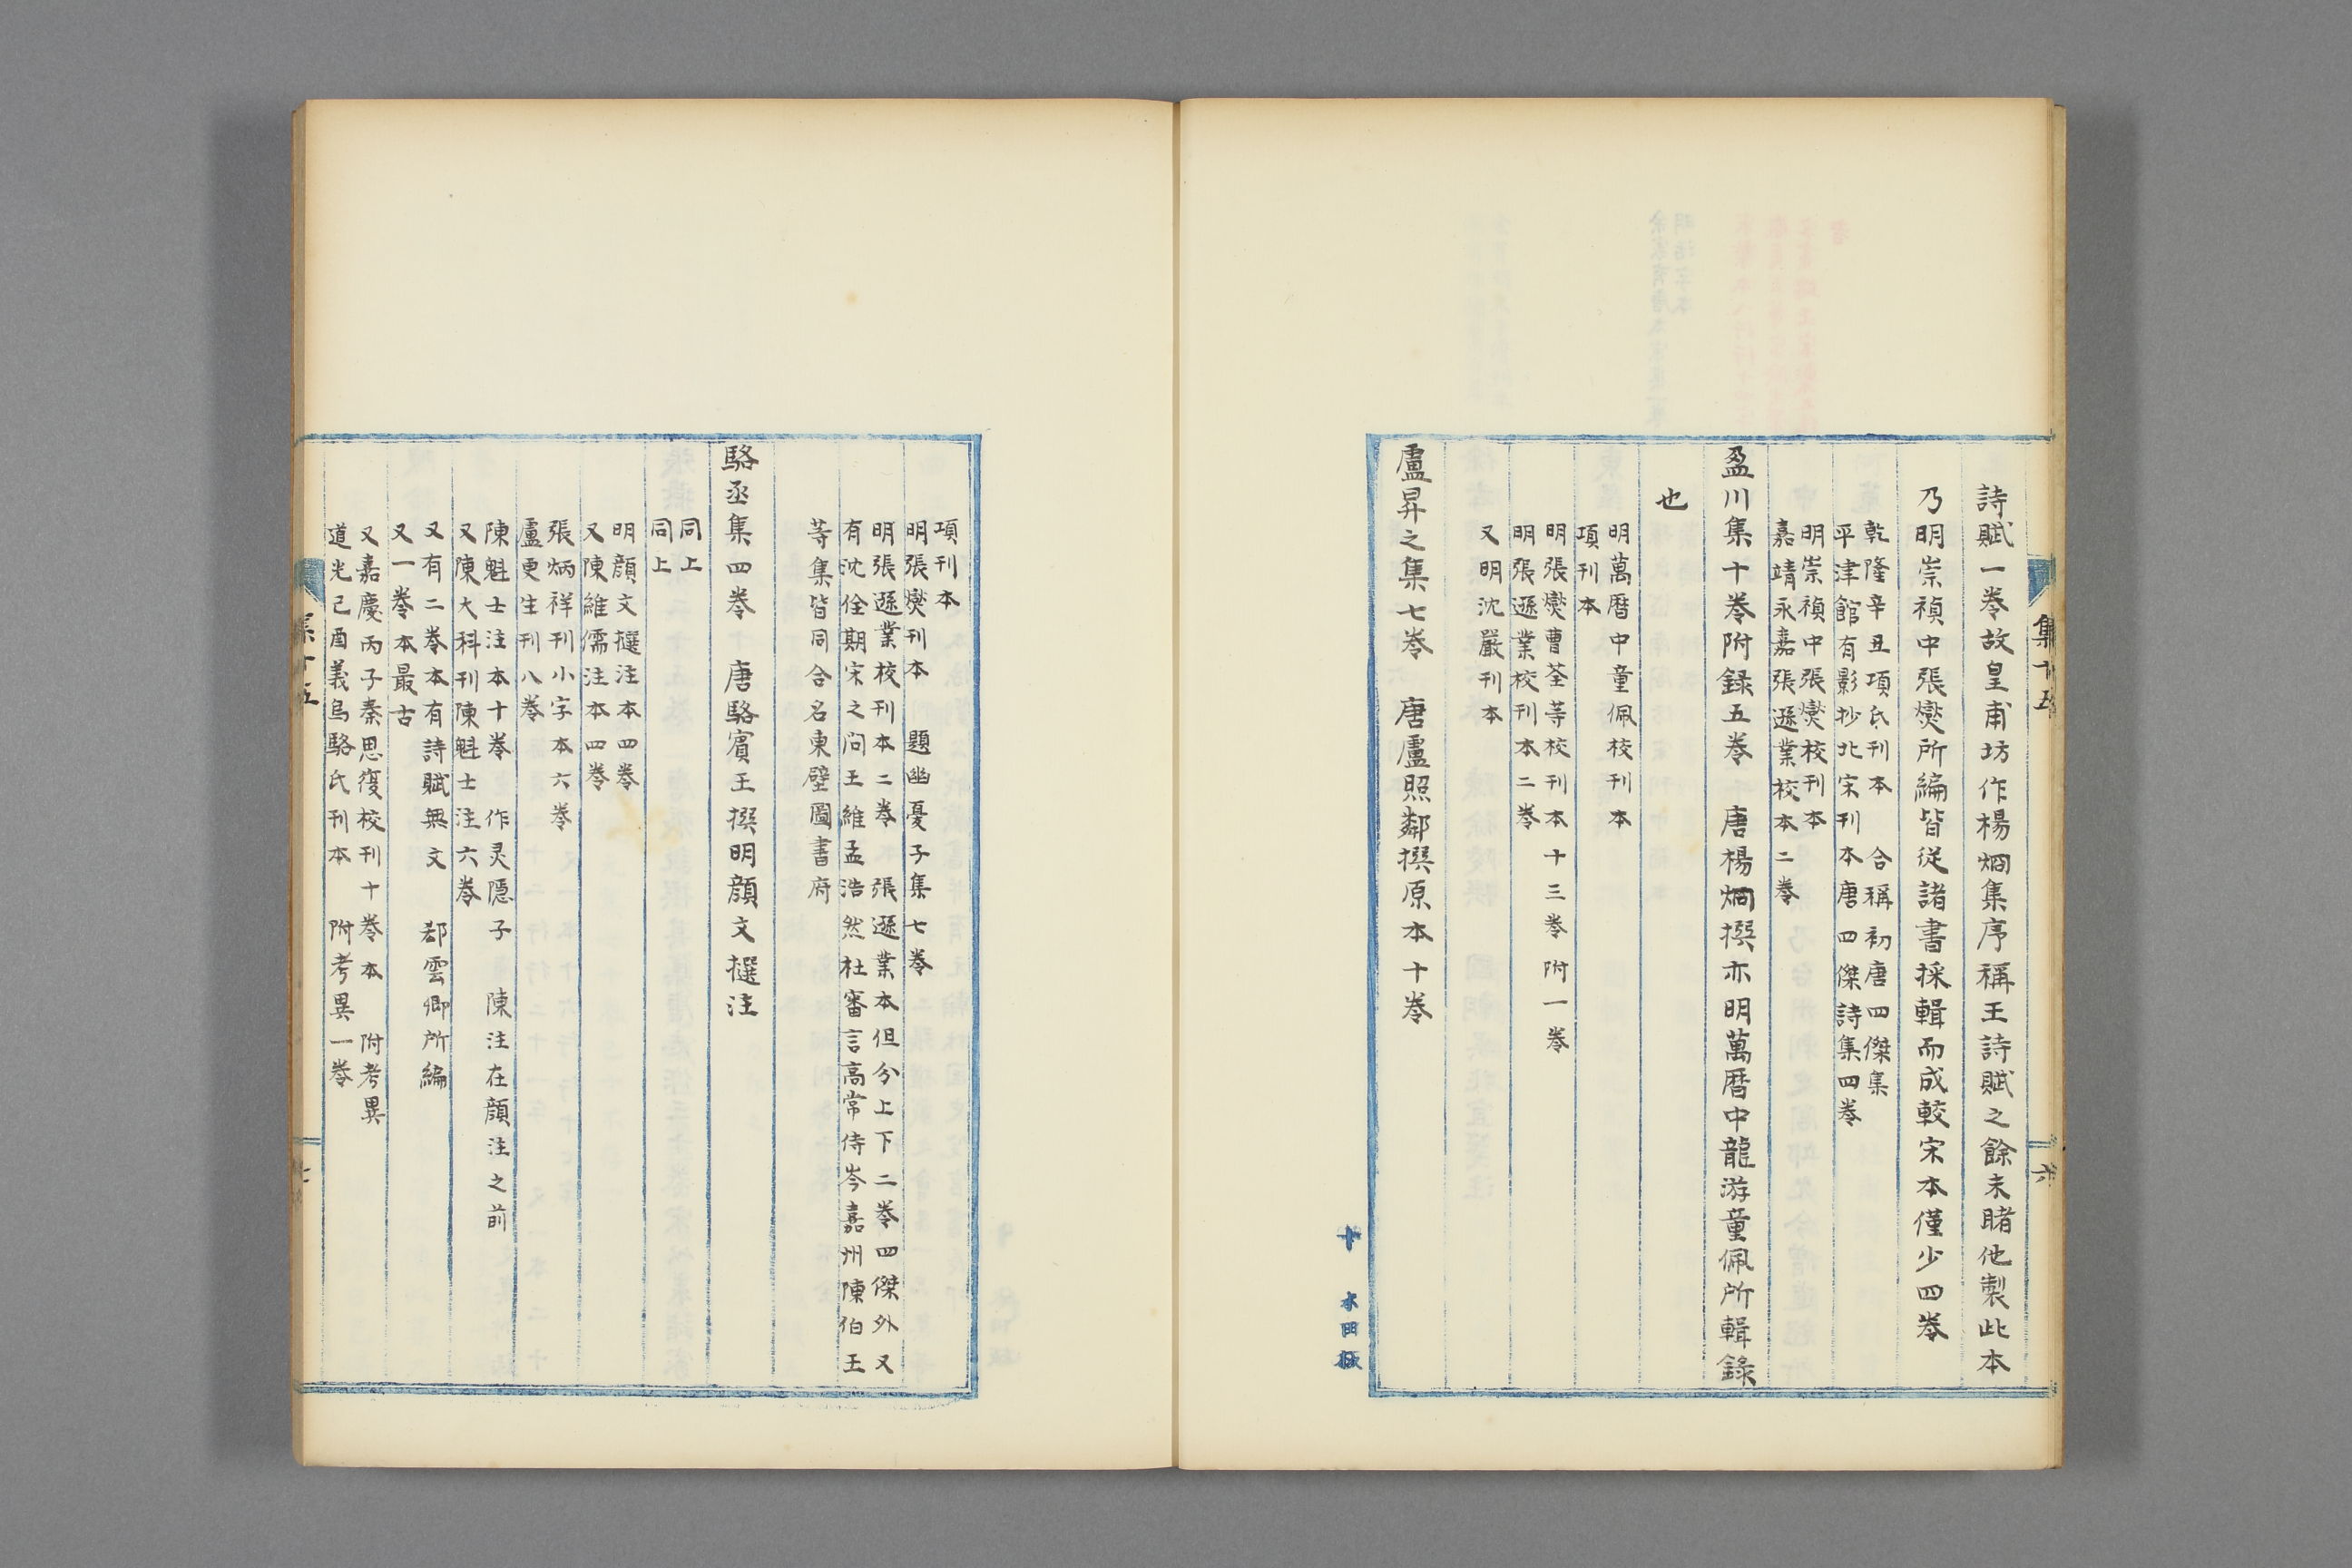 集十五
六
詩賦一卷故皇甫坊作楊烱集序稱王詩賦之餘未睹他製此本
乃明崇禎中張燮所編皆從諸書採輯而成較宋本僅少四卷
乾隆辛丑項氏刊本　合稱初唐四傑集
平津館有影抄北宋刊本唐四傑詩集四卷
明崇禎中張燮校刊本
嘉靖永嘉張遜業校本二卷
盈川集十卷附録五卷　唐楊烱撰亦明萬曆中龍游童佩所輯錄
也
明萬曆中童佩校刊本
項刊本
明張燮曹荃等校刊本十三卷附一卷
明張遜業校刊本二卷
又明沈嚴刊本
盧昇之集七卷　唐盧照鄰撰原本十卷
本田
項刊本
明張燮刊本　題幽憂子集七卷
明張遜業校刊本二卷　張遜業本但分上下二卷四傑外又
有沈佺期宋之问王維孟浩然杜審言高常侍岑嘉州陳伯王
等集皆同合名東壁圖書府
駱丞集四卷　唐駱賓王撰明顔文撰注
同上
同上
明顔文撰注本四卷
又陳維儒注本四卷
張炳祥刊小字本六卷
盧更生刊八卷
陳魁士注本十卷　作灵隱子　陳注在顔注之前
又陳大科刊陳魁士注六卷
又有二卷本有詩賦無文　郄雲卿所編
又一卷本最古
又嘉慶丙子秦恩復校刊十卷本　附考異
道光己酉義烏駱氏刊本　附考異一卷
集十五
七